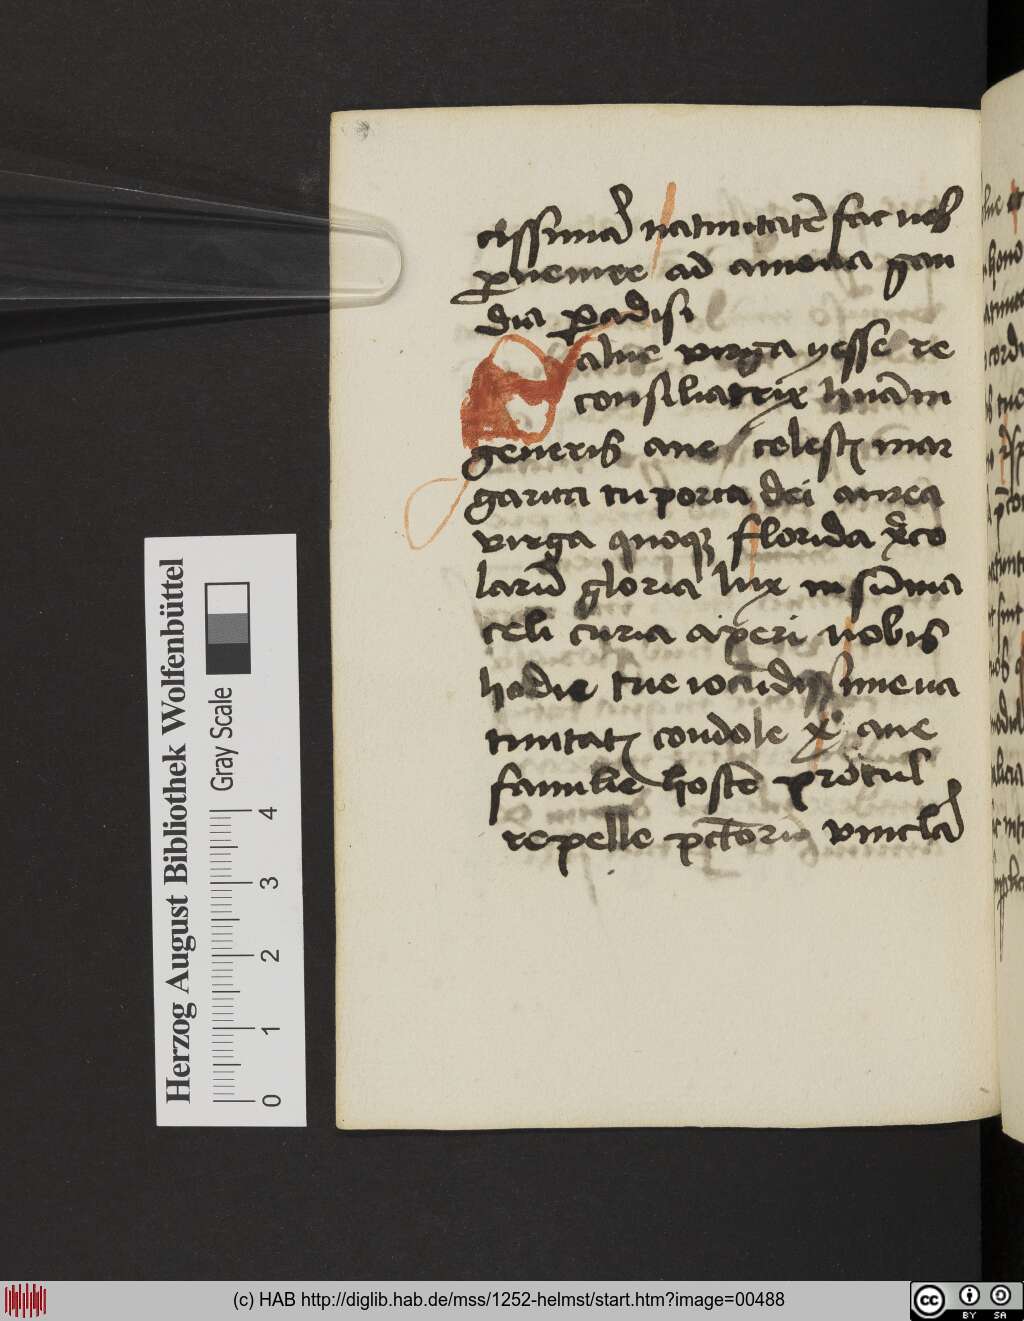 cissimā natiuitatē fac nob
ꝑuenire ad amena gau
dia ꝑadisi
Salue virga yesse re
consiliatrix humani
generis aue celestꝭ mar
garita tu porta dei aurea
virga quoqꝫ florida
larū gloria lux in sūma
celi curia aperi nobis
hodie tue iocūdissime na
tiuitatꝭ condole aue
familie hostē procul
repelle pctorū vincla
Herzog August Bibliothek Wolfenbüttel
Gray Scale
0 1 2 3 4
(c) HAB http://diglib.hab.de/mss/1252-helmst/start.htm?image=00488
cc BY SA